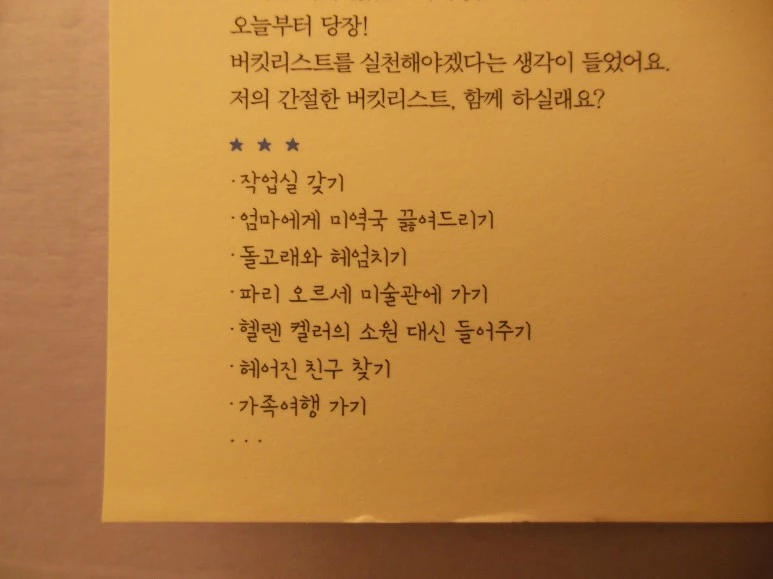 오늘부터 당장!
버킷리스트를 실천해야겠다는 생각이 들었어요.
저의 간절한 버킷리스트, 함께 하실래요?
★ ★ ★
·작업실 갖기
·엄마에게 미역국 끓여드리기
·돌고래와 헤엄치기
·파리 오르세 미술관에 가기
·헬렌 켈러의 소원 대신 들어주기
·헤어진 친구 찾기
·가족여행 가기
· · ·